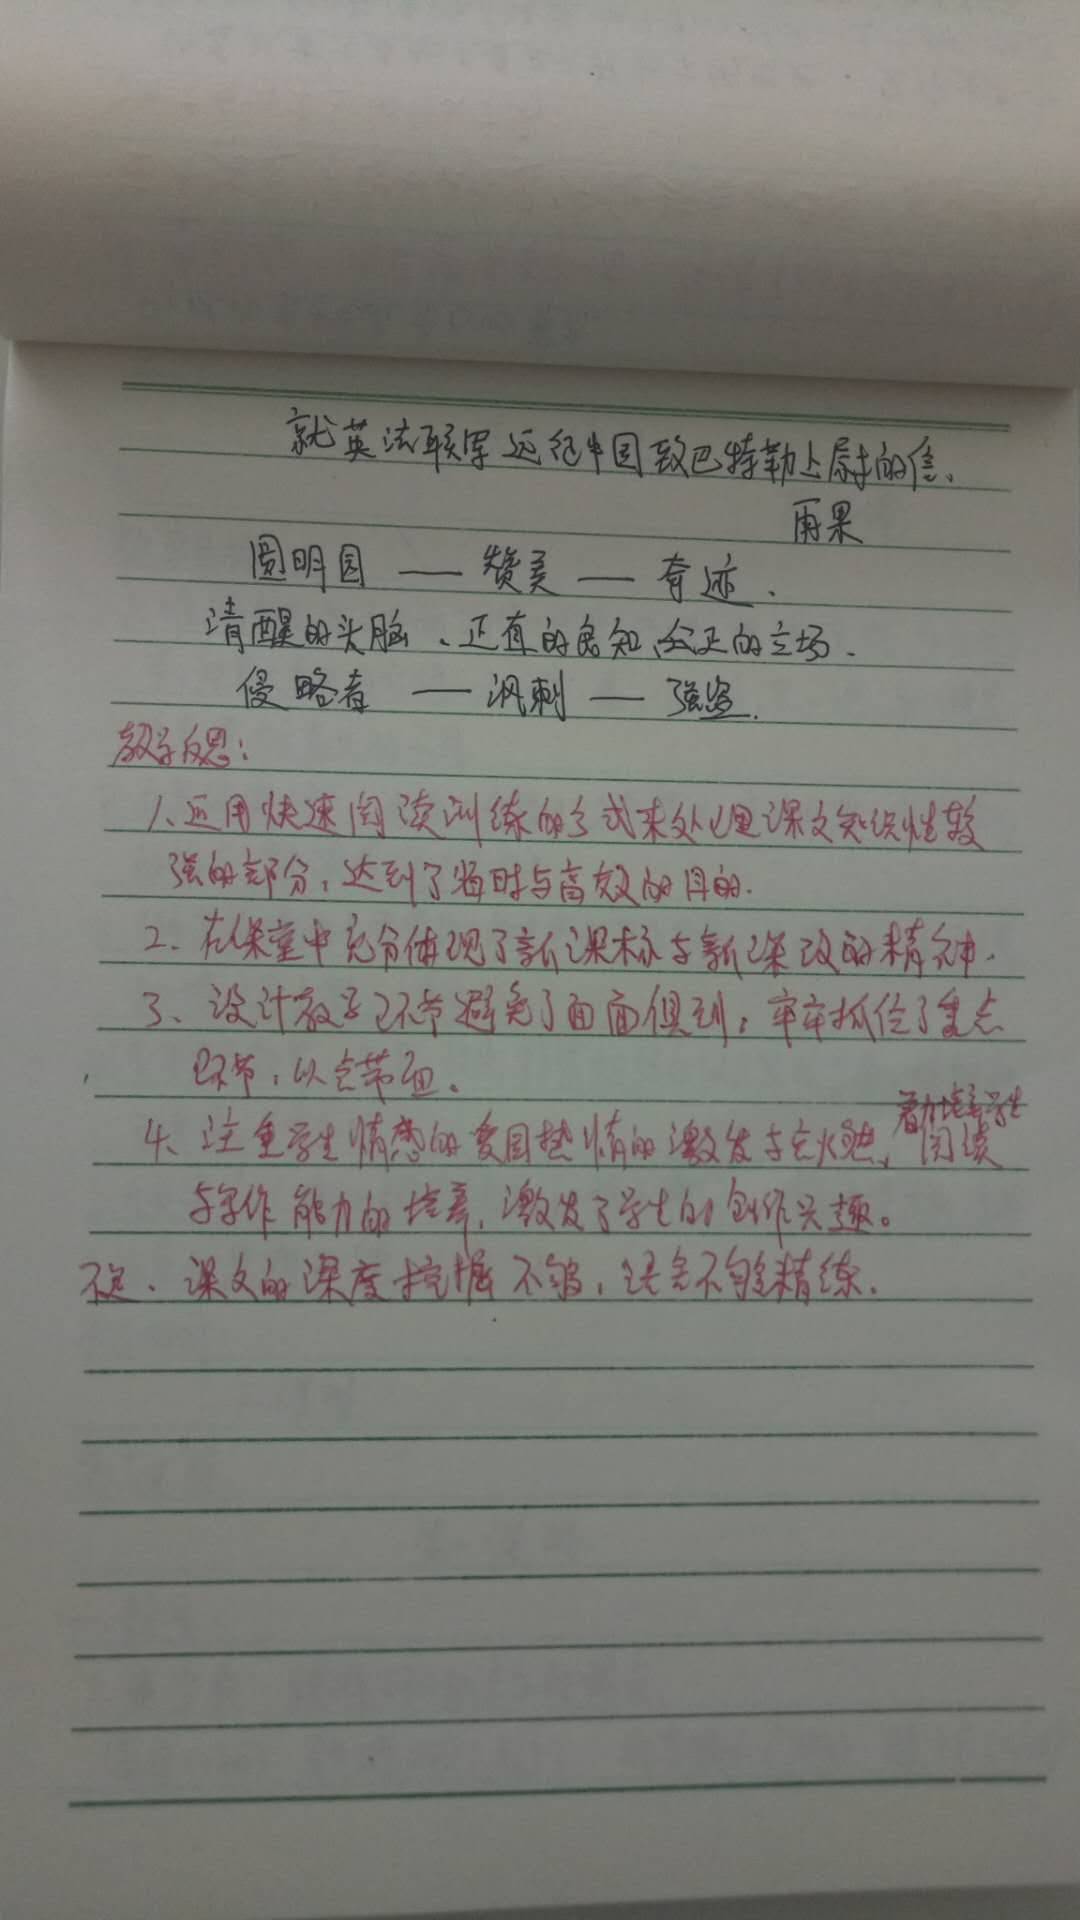 就英法联军远征中国致巴特勒上尉的信、
雨果
圆明园 —— 赞美 —— 奇迹.
清醒的头脑、正直的良知、公正的立场.
侵略者 —— 讽刺 —— 强盗.
教学反思:
1、运用快速阅读训练的方式来处理课文知识性较
强的部分,达到了省时与高效的目的.
2、在课堂中充分体现了新课标与新课改的精神.
3、设计教学环节避免了面面俱到,牢牢抓住了重点
环节,以点带面。
着力培养学生
4、注重学生情感的爱国热情的激发与点燃、阅读
与写作能力的培养,激发了学生的创作兴趣。
不足、课文的深度挖掘不够,语言不够精练.